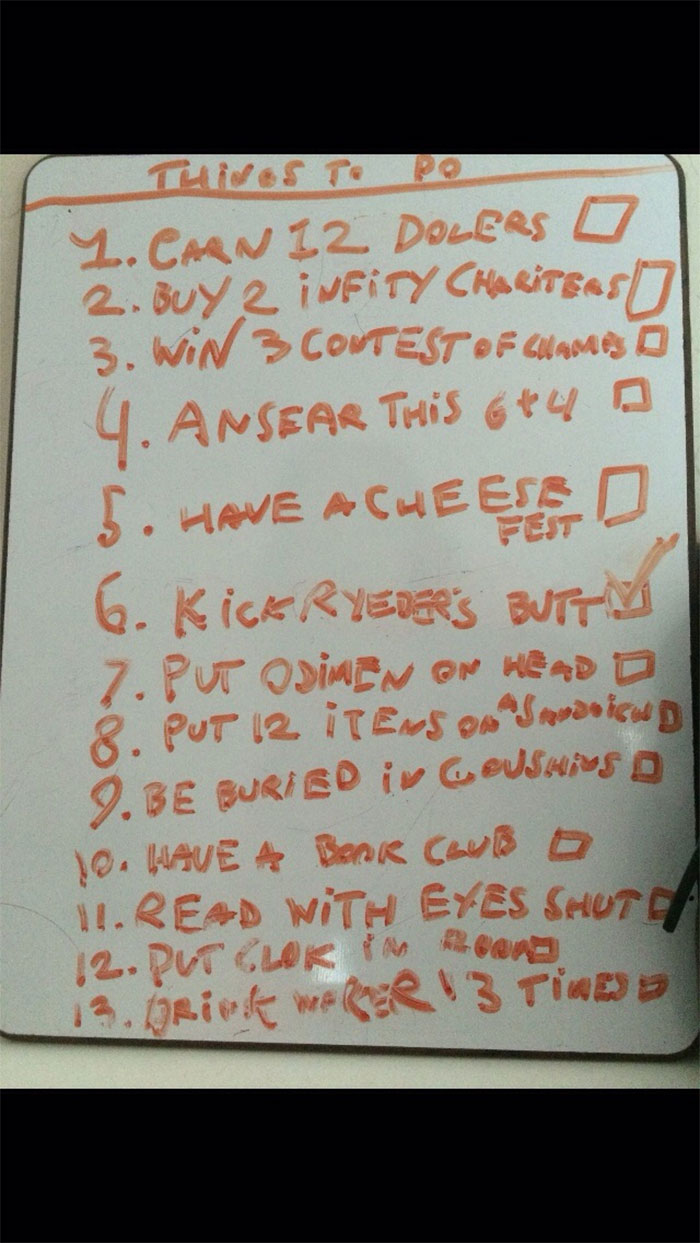 THINGS TO DO
1. EARN 12 DOLERS
2. BUY 2 iNFiTY CHARiTERS
3. WiN 3 CONTEST OF CHAMPS
4. ANSEAR THiS 6+4
5. HAVE A CHEESE
FEST
6. KiCK RYEDER'S BUTT
7. PUT ODiMEN ON HEAD
8. PUT 12 iTENS ON A SANDWiCH
9. BE BURiED iN COUSHiNS
10. HAVE A BOOK CLUB
11. READ WiTH EYES SHUT
12. PUT CLOK iN ROOM
13. DRiNK WATER 13 TiMES